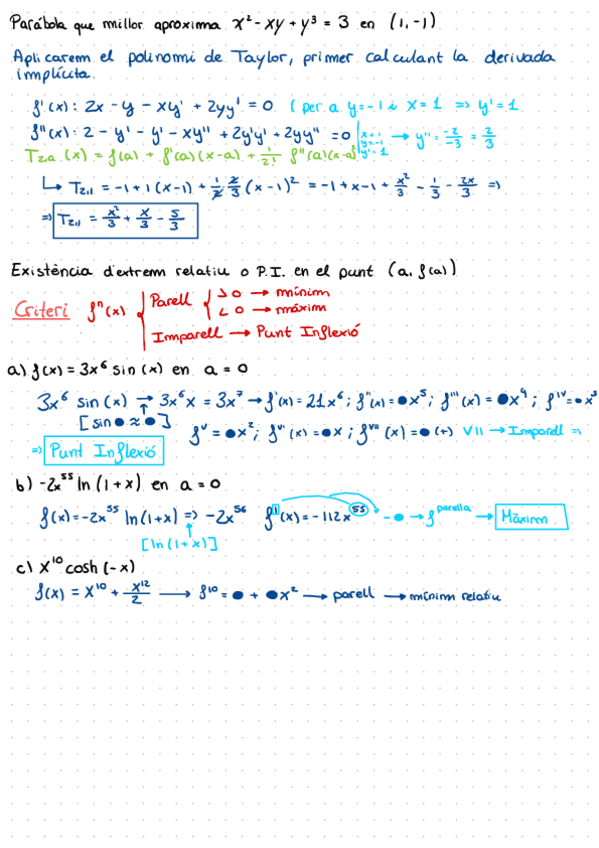 Paràbola que millor aproxima x² - xy + y³ = 3 en (1, -1)
Aplicarem el polinomi de Taylor, primer calculant la derivada
implícita.
f'(x): 2x - y - xy' + 2yy' = 0 (per a y=-1 i x=1 => y'=1
f''(x): 2 - y' - y' - xy'' + 2y'y' + 2yy'' = 0 | x=1 y=-1 y'=1 → y'' = -2/-3 = 2/3
T2,a (x) = f(a) + f'(a)(x-a) + 1/2! f''(a)(x-a)²
↳ T2,1 = -1 + 1(x-1) + 1/2 2/3 (x-1)² = -1 + x - 1 + x²/3 - 1/3 - 2x/3 =>
=> T2,1 = x²/3 + x/3 - 5/3
Existència d'extrem relatiu o P.I. en el punt (a, f(a))
Criteri fⁿ(x) { Parell { > 0 → mínim
< 0 → màxim
Imparell → Punt Inflexió
a) f(x) = 3x⁶ sin(x) en a = 0
3x⁶ sin(x) → 3x⁶x = 3x⁷ → f'(x) = 21x⁶; f''(x) = ●x⁵; f'''(x) = ●x⁴; f^IV = ●x³
[sin ● ≈ ●] f^V = ●x²; f^VI (x) = ●x; f^VII (x) = ● (+) VII → Imparell =>
=> Punt Inflexió
b) -2x⁵⁵ ln(1+x) en a = 0
f(x) = -2x⁵⁵ ln(1+x) => -2x⁵⁶ f¹(x) = -112x⁵⁵ - ● → f^parella → Màxim
[ln(1+x)]
c) x¹⁰ cosh(-x)
f(x) = x¹⁰ + x¹²/2 → f¹⁰ = ● + ●x² → parell → mínim relatiu